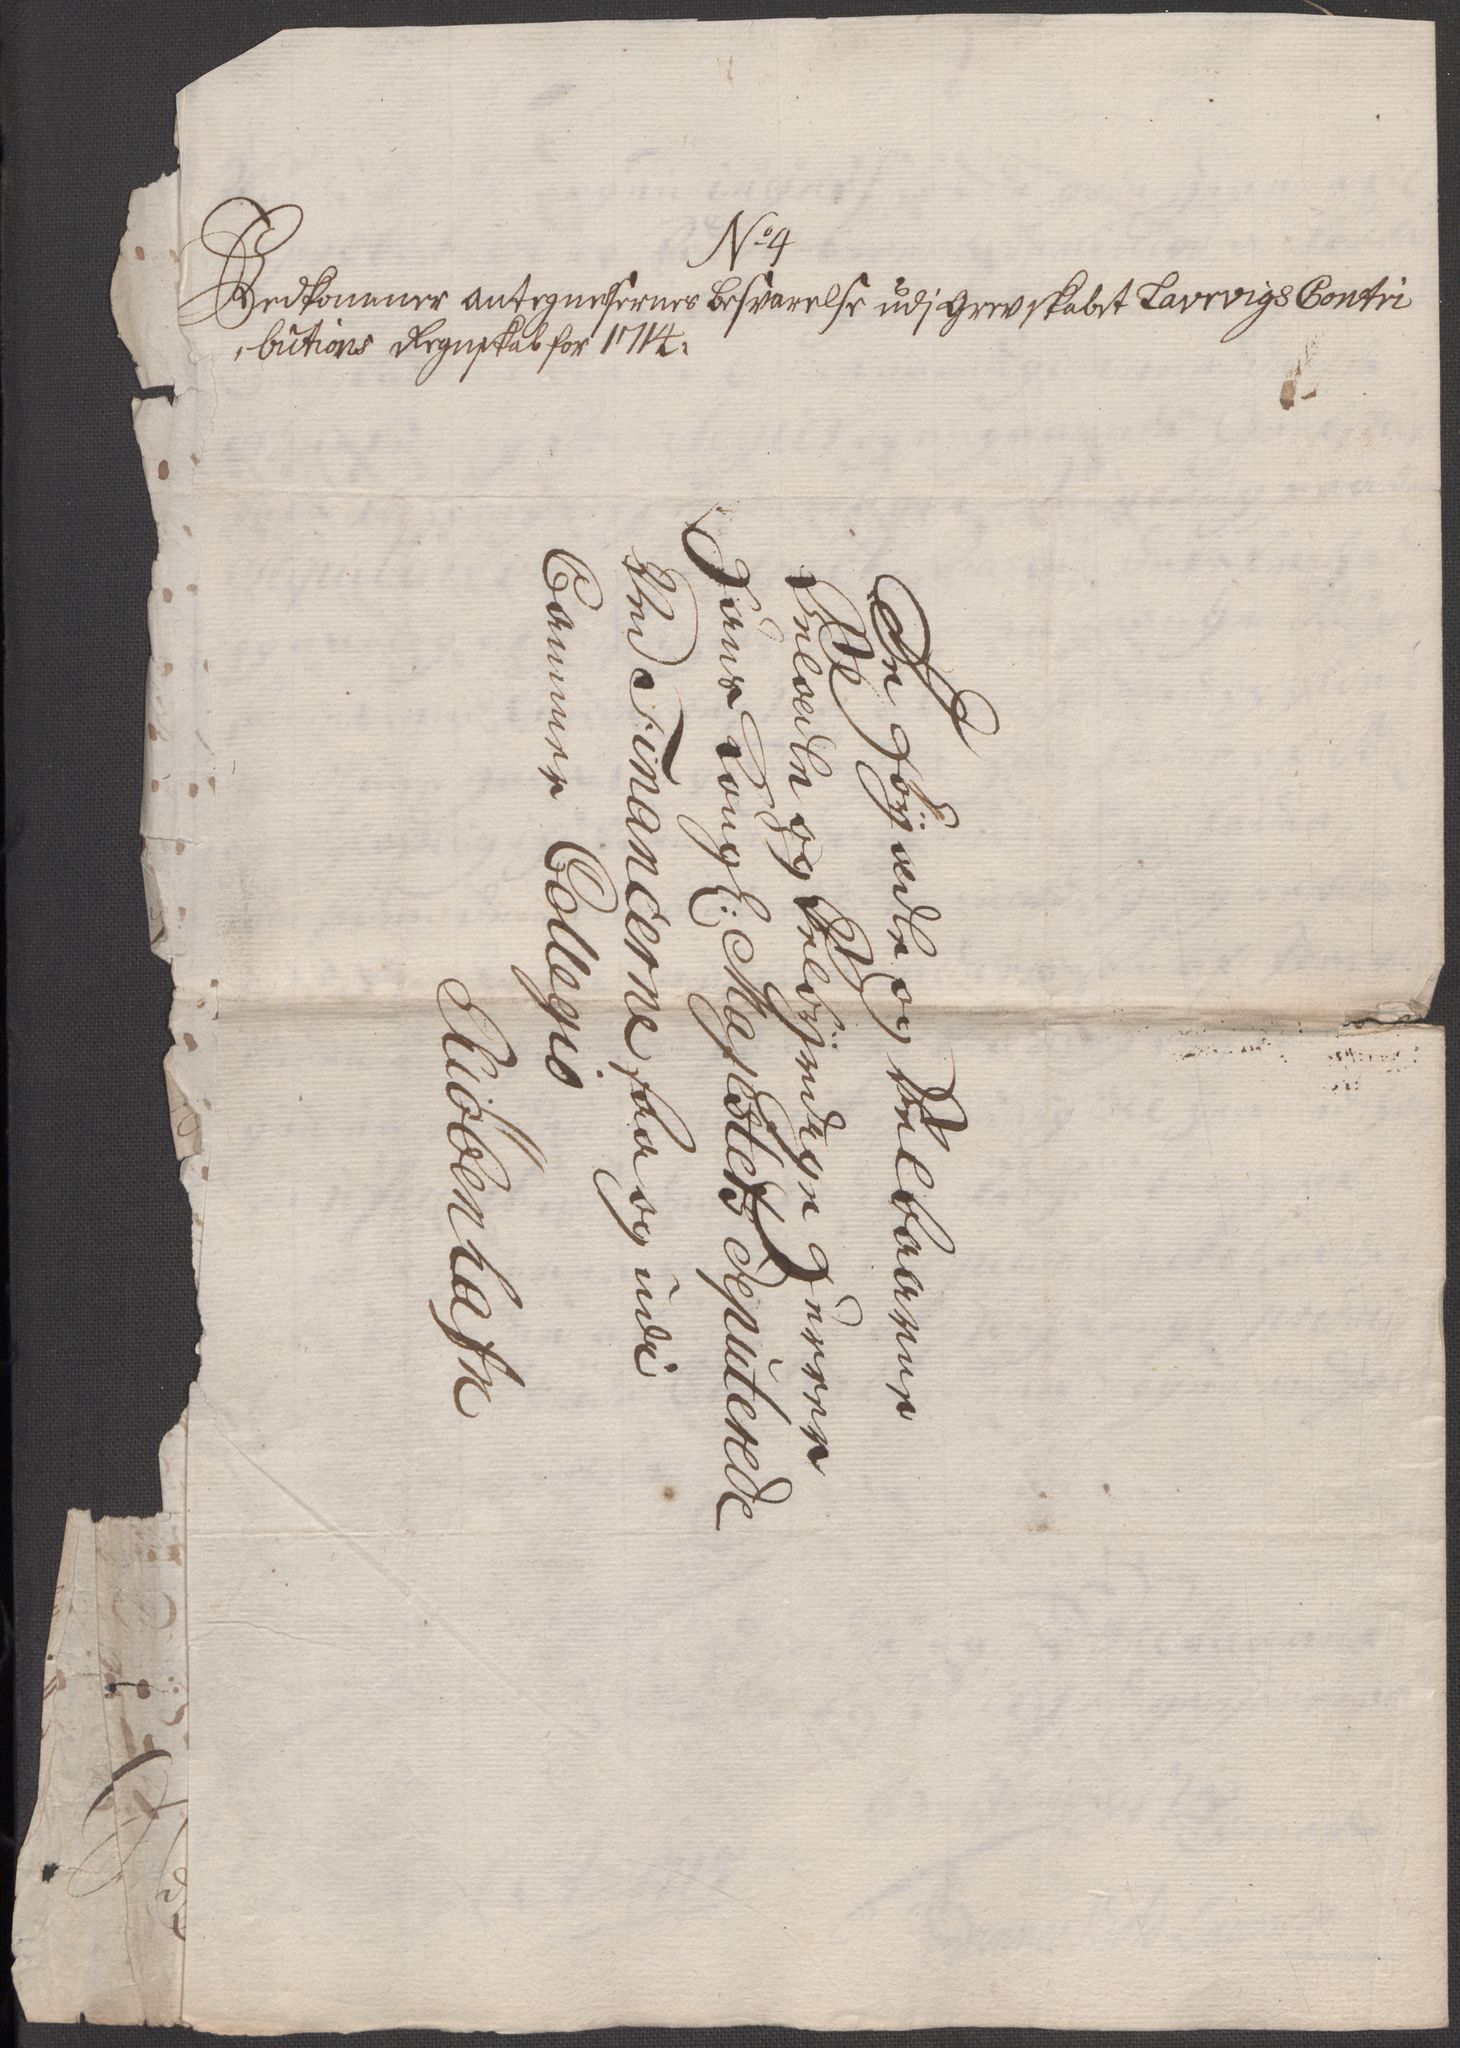 No 4
Vedkommer antegnelsernes besvarelse udj Grevskabet Laurvigs Contri
butions Regnskab for 1714.
De Høÿædle og Velbaarne
Velædle og Velbÿrdige Herrer
Hans Kongl: Maÿestets Deputerede
Ved Financerne saa og udi
Cammer Collegio
Kiöbenhafn